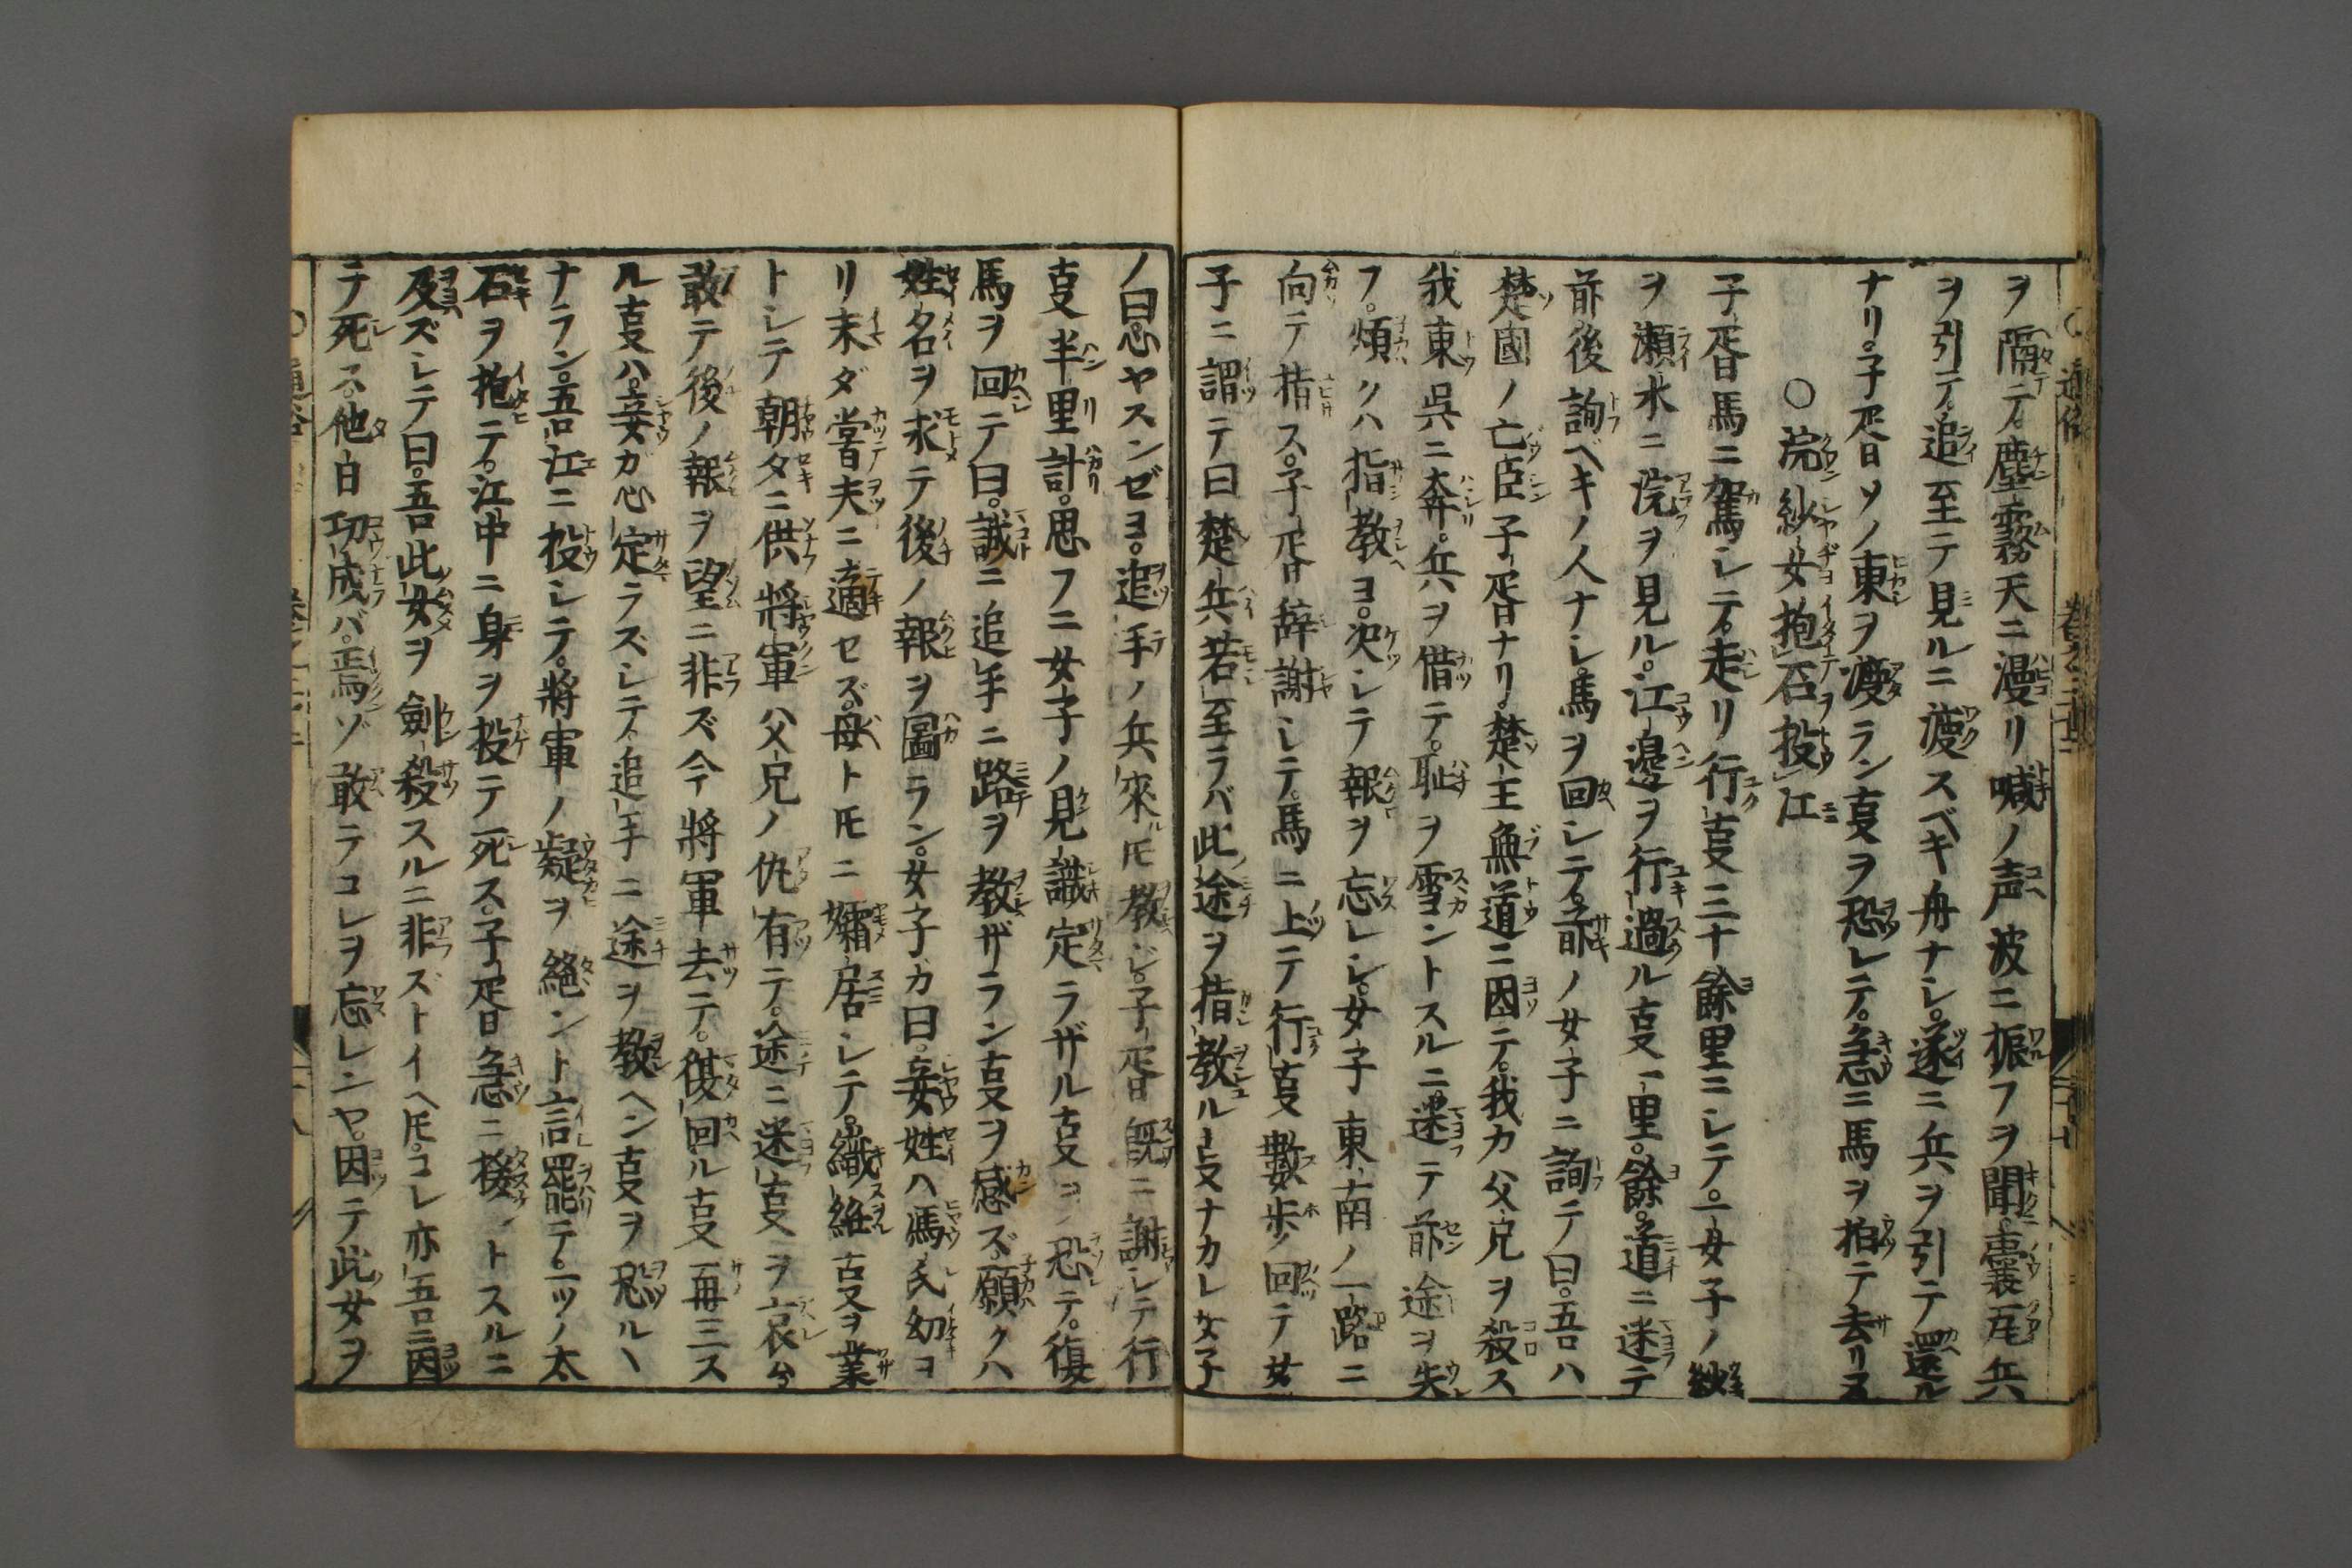 ヲ隔テ。塵霧天ニ漫リ喊ノ声波ニ振フヲ聞。囊瓦兵
ヲ引テ。追至テ見ルニ渡スベキ舟ナシ。遂ニ兵ヲ引テ還ル
ナリ。子胥ソノ東ヲ渡ラン叓ヲ恐レテ。急ニ馬ヲ拍テ去リヌ
〇浣紗女抱石投江
子胥馬ニ駕シテ。走リ行叓三十餘里ニシテ。一女子ノ紗
ヲ瀬水ニ浣ヲ見ル。江邊ヲ行過ル叓一里。餘。道ニ迷テ
前後詢ベキノ人ナシ。馬ヲ回シテ。前ノ女子ニ詢テ曰。吾ハ
楚國ノ亡臣子胥ナリ。楚王無道ニ因テ。我カ父兄ヲ殺ス
我東呉ニ奔。兵ヲ借テ。恥ヲ雪ントスルニ。迷テ前途ヲ失
フ。煩クハ指教ヨ。决シテ報ヲ忘レシ。女子東南ノ一路ニ
向テ指ス。子胥辞謝シテ。馬ニ上テ行叓數歩。回テ女
子ニ謂テ曰楚兵若至ラバ此途ヲ指教ル叓ナカレ女子
ノ曰心ヤスンゼヨ。追手ノ兵來ルトモ教ジ。子胥既ニ謝シテ行
叓半里計。思フニ女子ノ見識定ラザル叓ヲ恐テ。復
馬ヲ回テ曰。誠ニ追手ニ路ヲ教ザラン叓ヲ感ズ。願クハ
姓名ヲ求テ後ノ報ヲ圖ラン。女子カ曰。妾姓ハ馮氏幼ヨ
リ末ダ甞夫ニ適セズ。母トトモニ孀居シテ。織絍古叓ヲ業
トシテ朝夕ニ供將軍ハ父兄ノ仇有テ。途ニ迷叓ヲ哀ム
敢テ後ノ報ヲ望ニ非ズ今將軍去テ。復回ル叓再三ス
ル叓ハ。妾ガ心定ラズシテ。追手ニ途ヲ教ヘン叓ヲ恐ル丶
ナラン。吾江ニ投シテ。將軍ノ疑ヲ絕ント言罷テ。一ツノ太
石ヲ抱テ。江中ニ身ヲ投テ死ス。子胥急ニ
及ズシテ曰。吾此女ヲ劍殺スルニ非ズトイヘトモ。コレ亦吾ニ因
テ死ス。他日功成バ。焉ゾ敢テコレヲ忘レンヤ。因テ此女ヲ